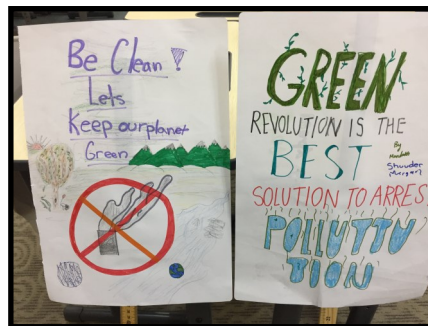 Be Clean!
Lets
Keep our planet
Green
GREEN
REVOLUTION IS THE
BEST
By
Shuuder
Morgan
SOLUTION TO ARRES
POLLUTTU
TION